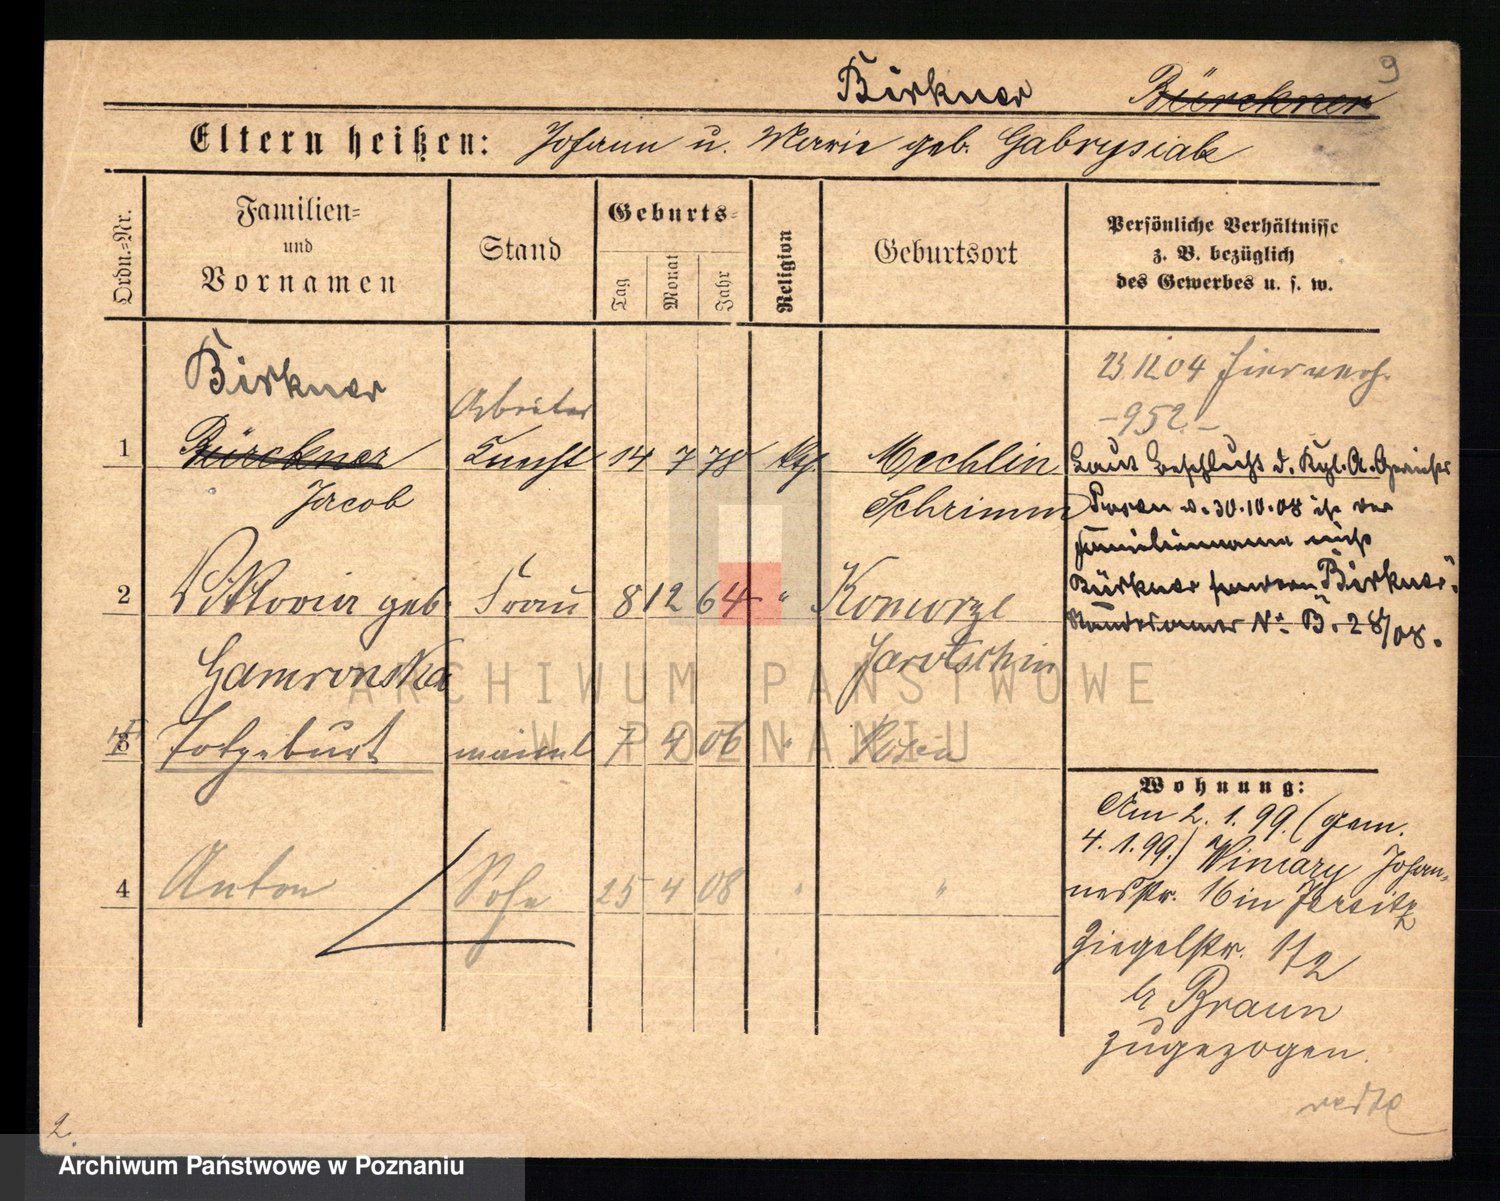 9
Birkner Bürckner
Eltern heißen: Johann u. Marie geb. Gabrysiak
Ordn.=Nr.
Familien=
und
Vornamen
Stand
Geburts=
Tag
Monat
Jahr
Religion
Geburtsort
Persönliche Verhältnisse
z. B. bezüglich
des Gewerbes u. s. w.
Birkner
Arbeiter
1 Bürckner Knecht 14 7 78 kth. Mechlin
Jacob Schrimm
2 Viktoria geb. Frau 8 12 64 " Komorze
Gamronska Jarotschin
3 Totgeburt männl 7 4 06 " Posen
4 Anton Sohn 25 4 08 " "
23.12.04
-952-
Laut Beschlußt d. Kgl. A. Gerichts
Posen v. 30.10.08 ist der
Familienname nicht
Bürkner sondern "Birkner".
Standesamt No B. 28/08.
Wohnung:
Am 2. 1. 99. (gem.
4. 1. 99.) Winiary Johan-
nesstr. 16 in Jersitz
Ziegelstr. 172
b Braun
zugezogen.
2.
ARCHIWUM PAŃSTWOWE
W POZNANIU
Archiwum Państwowe w Poznaniu